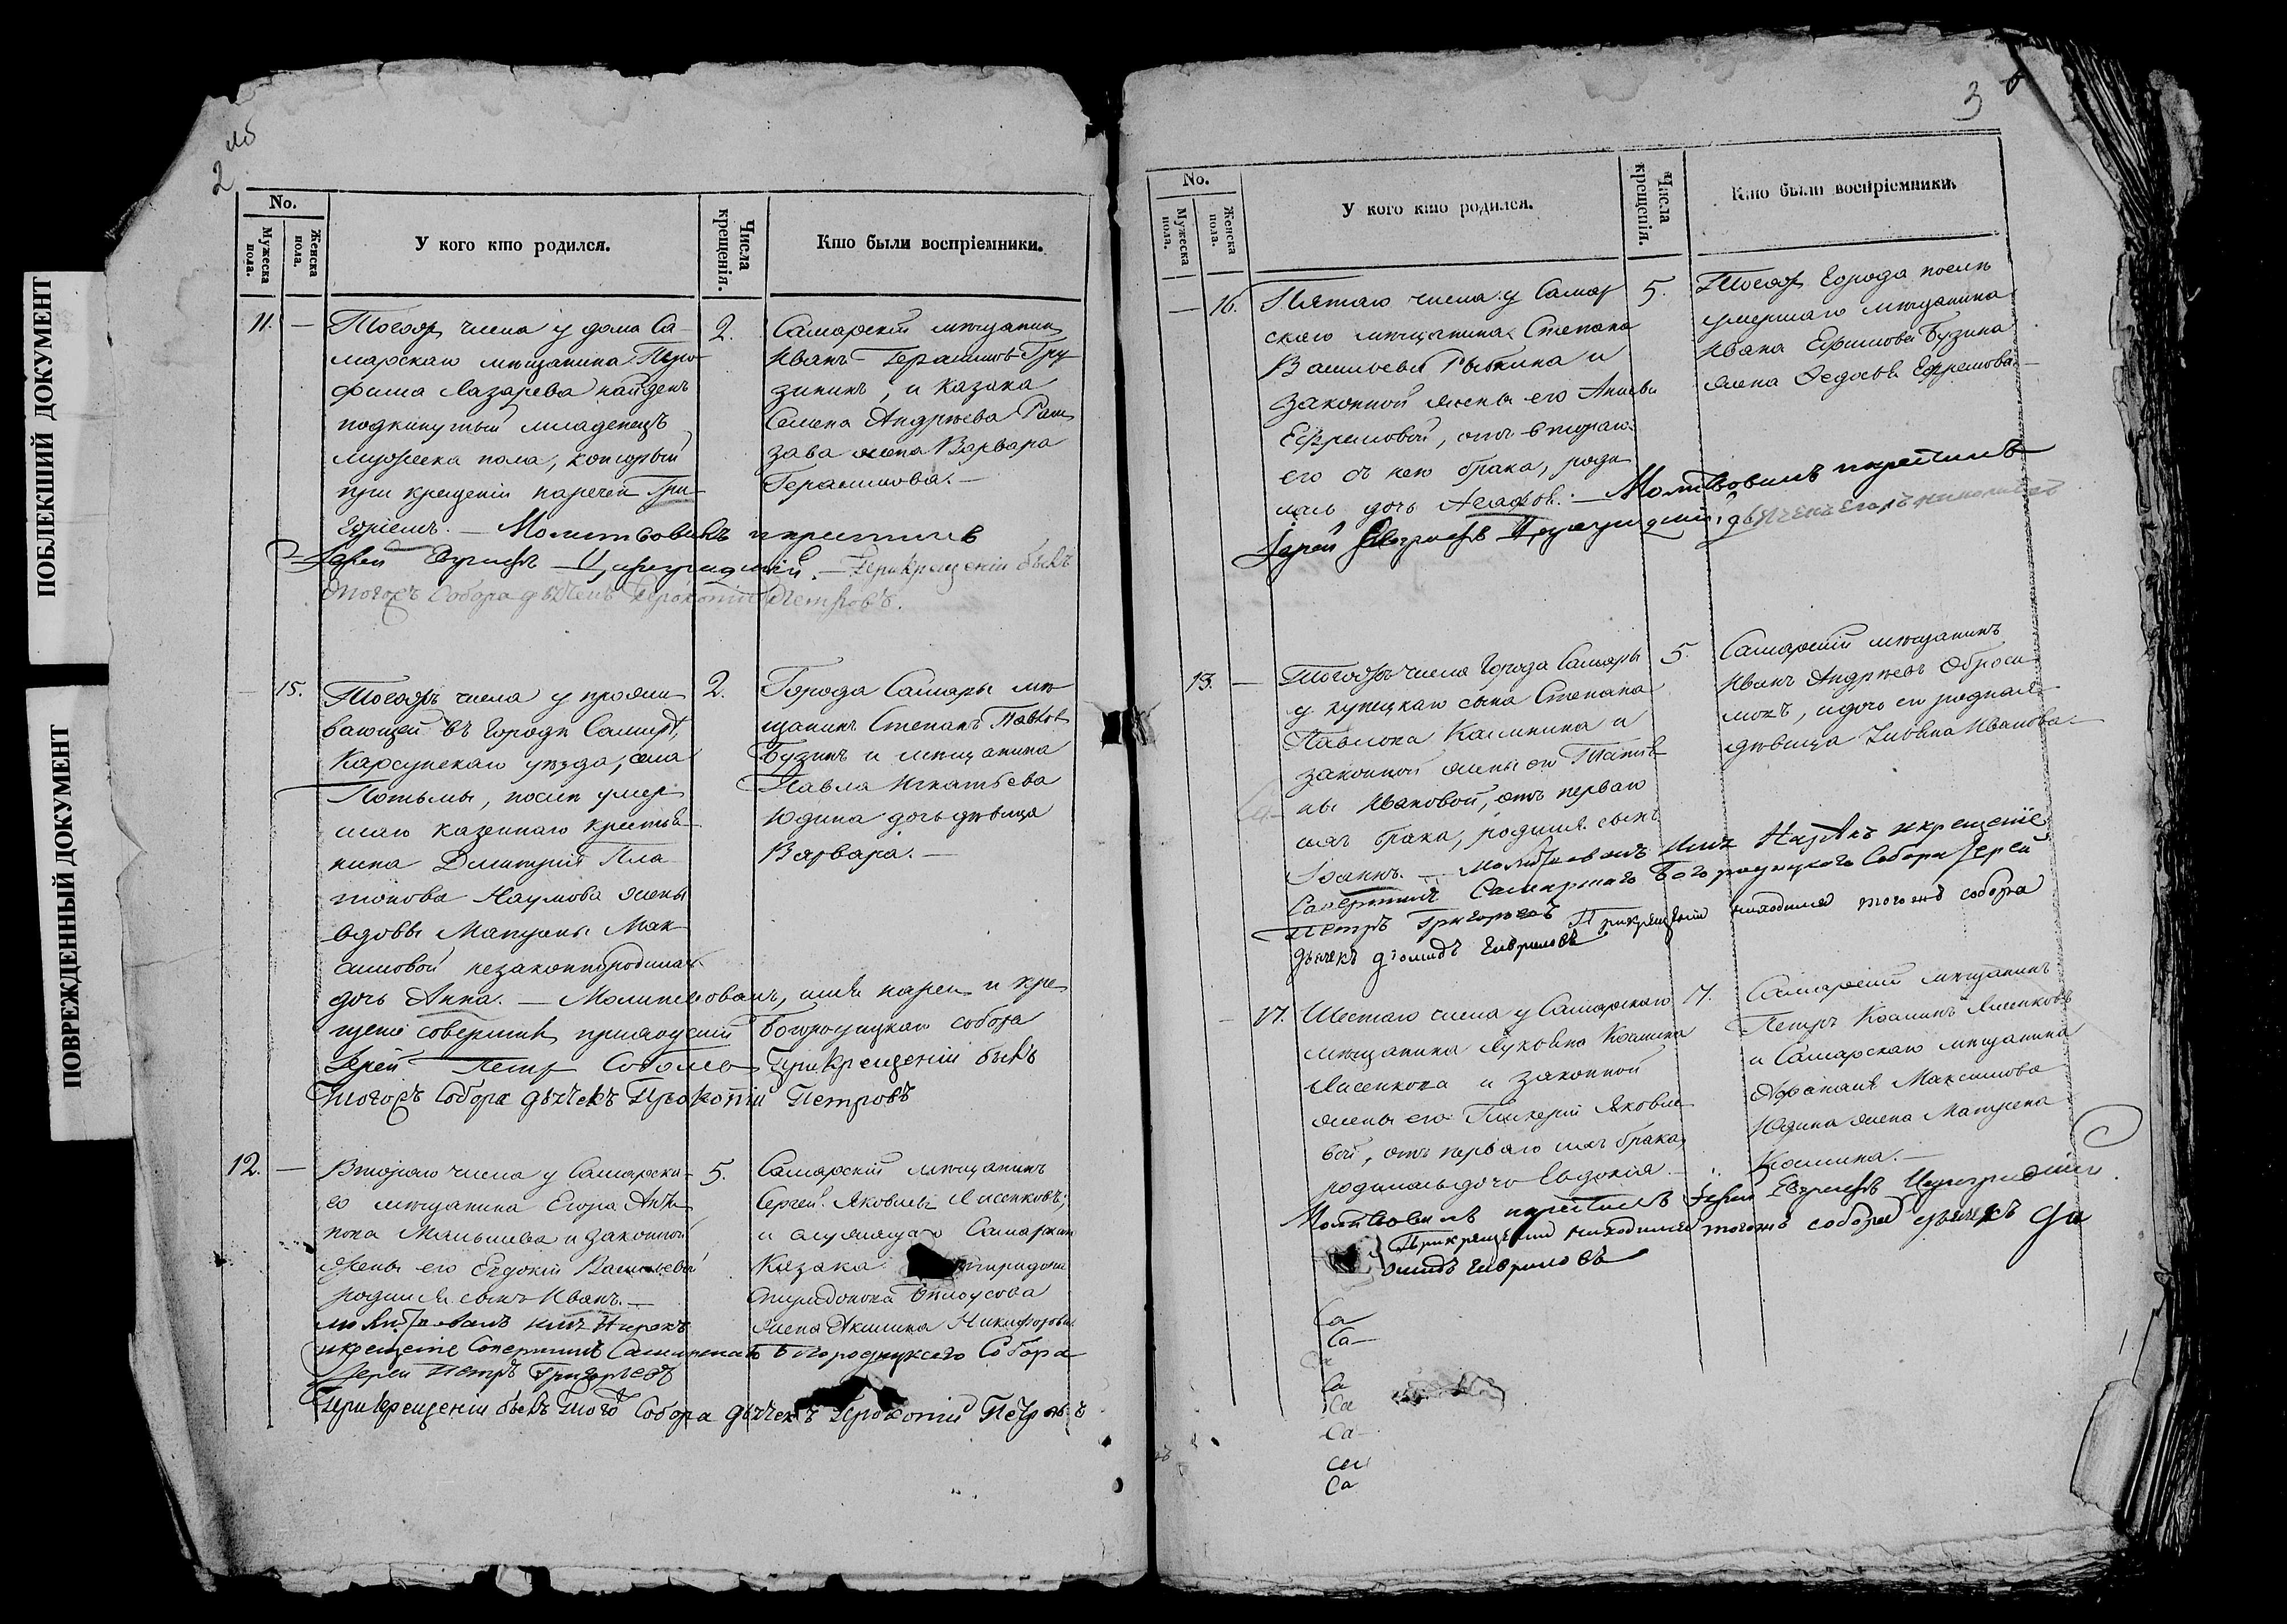 ПОБЛЕКШИЙ ДОКУМЕНТ
ПОВРЕЖДЕННЫЙ ДОКУМЕНТ
2
No.
Мужеска пола.
Женска пола.
У кого кто родился.
Числа крещенія.
Кто были воспріемники.
11. —
Тогожъ числа у дома Са-
марскаго мѣщанина
Лазарева найденъ
подкинутый младенецъ
мужеска пола, который
при крещеніи нареченъ Гри-
горіемъ. — Молитвовалъ и крестилъ
Іерей
При крещеніи былъ
тогожъ Собора дьячекъ Прокопій Петровъ.
2.
Самарскій мѣщанинъ
Иванъ Герасимовъ Гру-
зинин, и казака
Семена Андрѣева
жена Варвара
Герасимова. —
15.
Тогожъ числа у прожи-
вающей въ городѣ Самарѣ,
Карсунскаго уѣзда, села
Потьмы, послѣ умер-
шаго казеннаго крестья-
нина Дмитрія Пла-
тонова Наумова жены
вдовы Матрены Мак-
симовой незаконнорожденная
дочь Анна. — Молитвовалъ, имя нарек и кре-
щеніе совершилъ Богородицкаго собора
Іерей Петр
При крещеніи былъ
тогожъ Собора дьячекъ Прокопій Петровъ
2.
Города Самары мѣ-
щанинъ Степанъ Павлов
Бузинъ и мѣщанина
Павла Игнатьева
Юдина дочь дѣвица
Варвара. —
12. —
Втораго числа у Самарска-
го мѣщанина Егора
Малышева и законной
жены его Евдокіи Васильевой
родился сынъ Иванъ. —
Молитвовалъ имя Нарекъ
и крещеніе Совершилъ Самарскаго Богородицкаго Собора
Іерей Петръ Григорьевъ
При крещеніи былъ того Собора дьячекъ Прокопій Петровъ
5.
Самарскій мѣщанинъ
Сергей Яковлевъ Лисенковъ,
и служащаго Самарскаго
Казака
Спиридонова Бѣлоусова
жена Акилина Никифорова
3
No.
Мужеска пола.
Женска пола.
У кого кто родился.
Числа крещенія.
Кто были воспріемники.
— 16.
Пятаго числа у Самар-
скаго мѣщанина Степана
Васильева Рыбкина и
законной жены его
Ефремовой, отъ втораго
его съ нею брака, роди-
лась дочь — Молитвовалъ и крестилъ
Іерей
5.
Тогожъ Города послѣ
умершаго мѣщанина
Ивана Ефимова Бузина
жена Федосья Ефремова. —
13. —
Тогожъ числа Города Самары
у купецкаго сына Степана
Павлова Калинина и
законной жены его Татья-
ны Ивановой, отъ перваго
ихъ брака, родился сынъ
Іоаннъ. — Молитвовалъ имя Нарѣкъ и крещеніе
Совершилъ Самарскаго Богородицкаго Собора Іерей
Петръ Григорьевъ При крещеніи находился того жъ собора
дьячекъ Диомидъ Гавриловъ
5.
Самарскій мѣщанинъ
Иванъ Андрѣевъ Оброси-
мовъ, и дочь его родная
дѣвица Ивановна. —
— 17.
Шестаго числа у Самарскаго
мѣщанина Козмина
Лисенкова и законной
жены его Гликеріи Яковле-
вой, отъ перваго ихъ брака,
родилась дочь Евдокія. —
Молитвовалъ и крестилъ Іерей
При крещеніи находился тогожъ собора дьячекъ Ди-
омидъ Гавриловъ
Самарскій мѣщанинъ
Петръ Козминъ Лисенковъ
и Самарскаго мѣщанина
Афанасія Максимова
Юдина жена Матрена
Козмина. —
Са
Са
Са
Са
Са
Са
Са